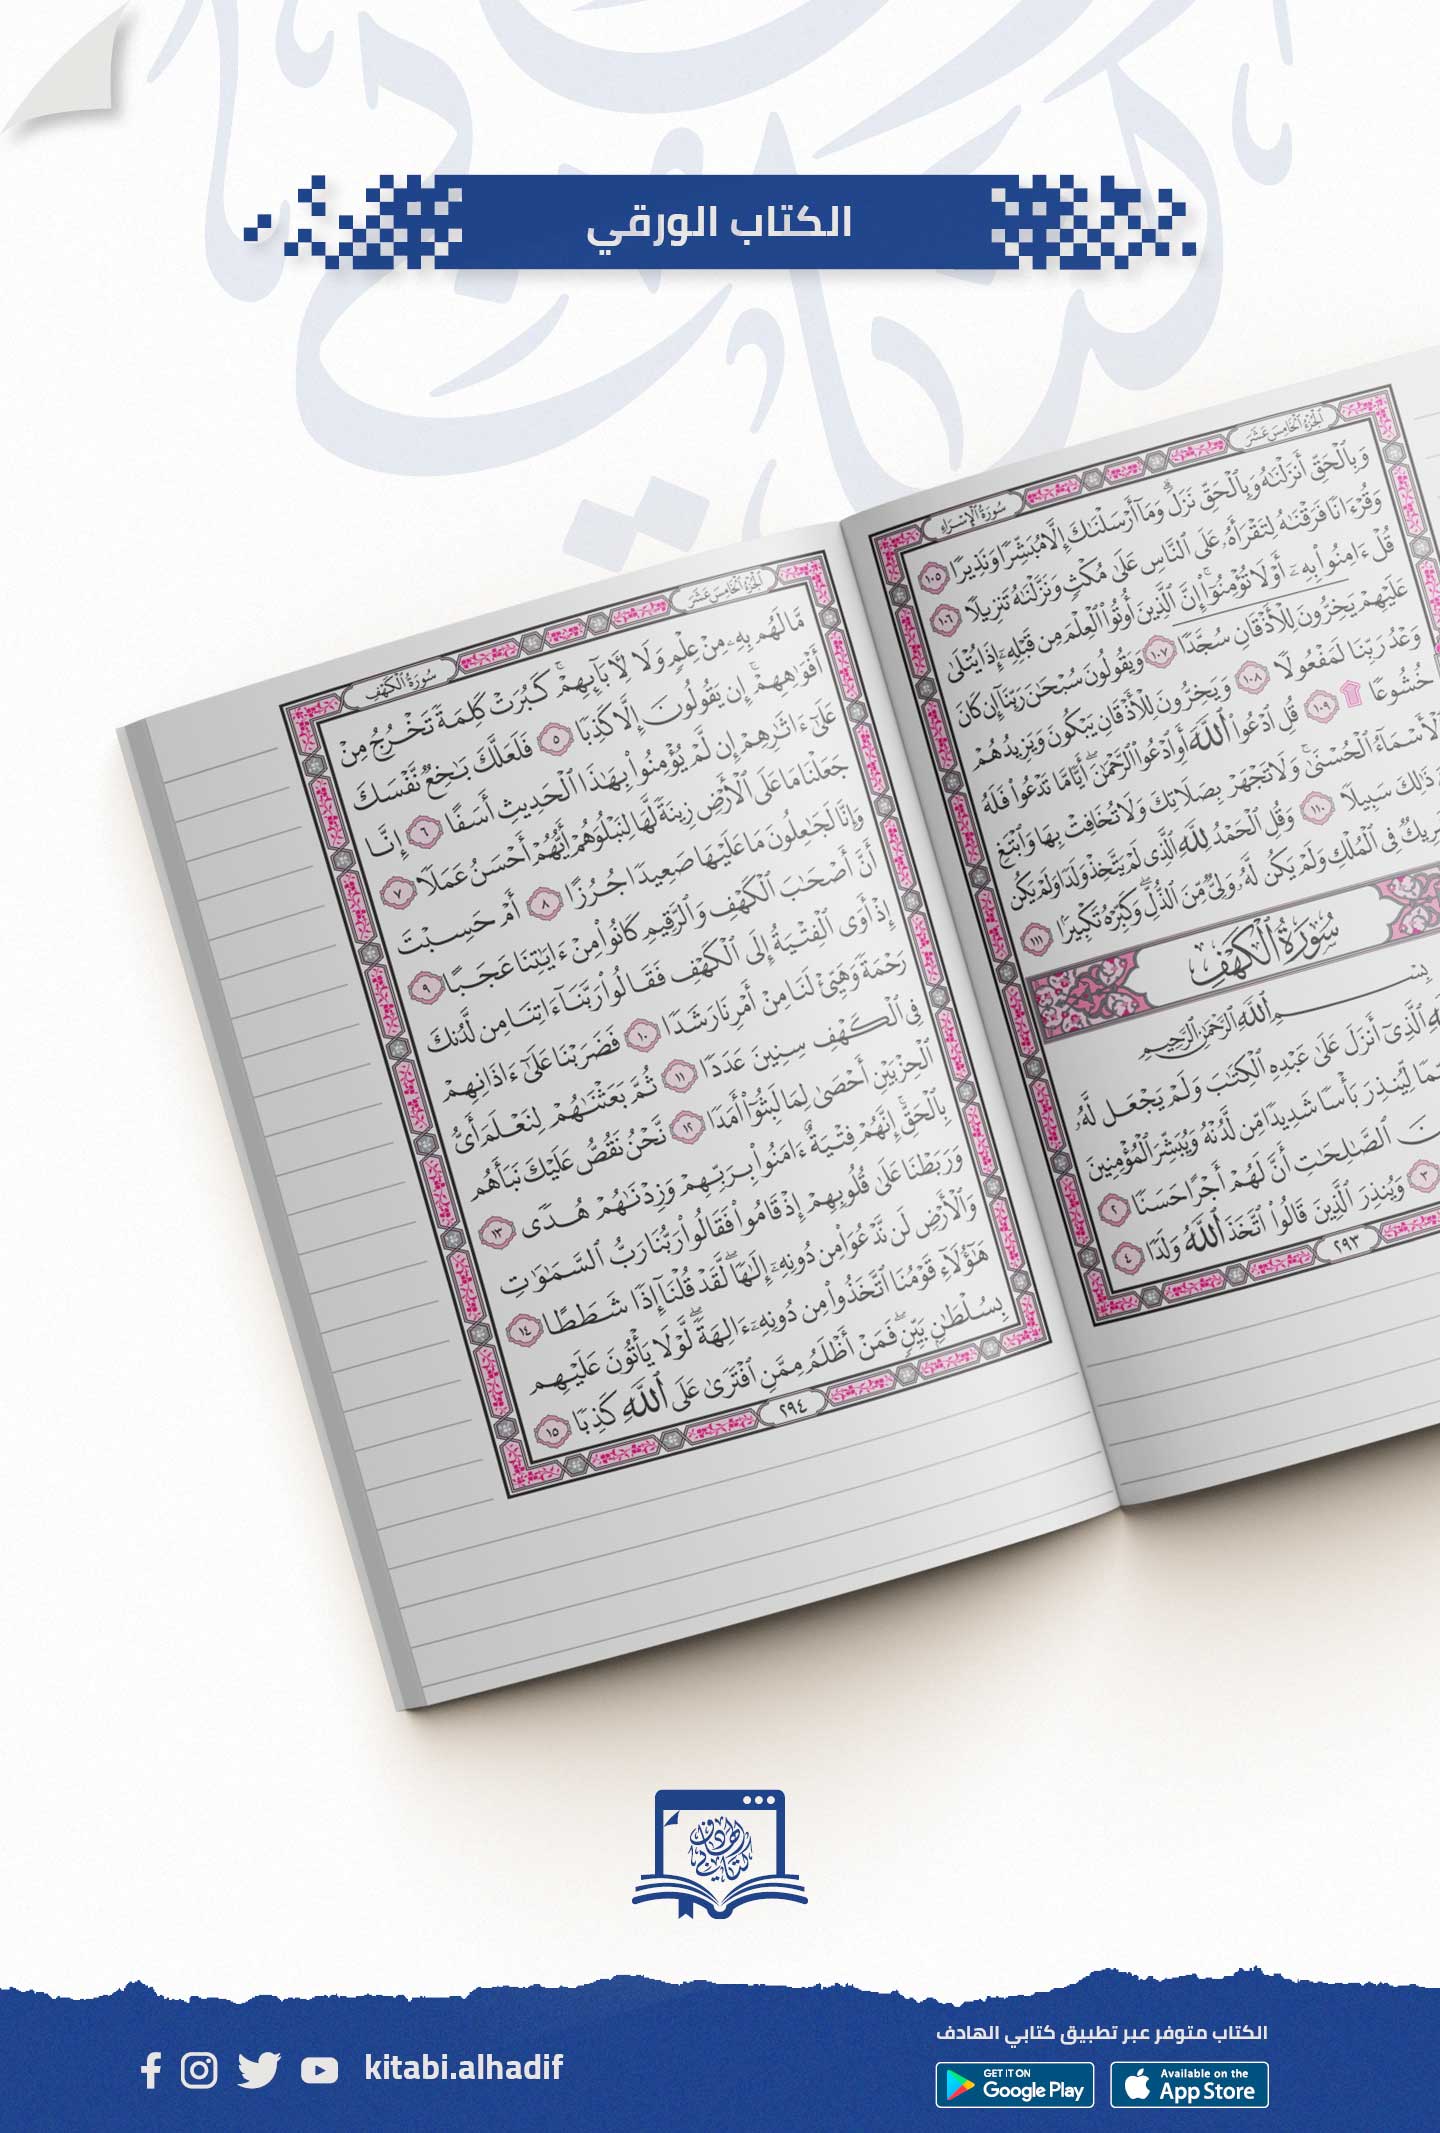 الكتاب الورقي
الجزء الخامس عشر
سورة الإسراء
وَبِالْحَقِّ أَنزَلْنَٰهُ وَبِالْحَقِّ نَزَلَ ۗ وَمَآ أَرْسَلْنَٰكَ إِلَّا مُبَشِّرًا وَنَذِيرًا ١٠٥
وَقُرْءَانًا فَرَقْنَٰهُ لِتَقْرَأَهُۥ عَلَى النَّاسِ عَلَىٰ مُكْثٍ وَنَزَّلْنَٰهُ تَنزِيلًا ١٠٦
قُلْ ءَامِنُوا۟ بِهِۦٓ أَوْ لَا تُؤْمِنُوٓا۟ ۚ إِنَّ الَّذِينَ أُوتُوا۟ الْعِلْمَ مِن قَبْلِهِۦٓ إِذَا يُتْلَىٰ
عَلَيْهِمْ يَخِرُّونَ لِلْأَذْقَانِ سُجَّدًا ١٠٧ وَيَقُولُونَ سُبْحَٰنَ رَبِّنَآ إِن كَانَ
وَعْدُ رَبِّنَا لَمَفْعُولًا ١٠٨ وَيَخِرُّونَ لِلْأَذْقَانِ يَبْكُونَ وَيَزِيدُهُمْ
خُشُوعًا ۩ ١٠٩ قُلِ ادْعُوا۟ اللَّهَ أَوِ ادْعُوا۟ الرَّحْمَٰنَ ۖ أَيًّا مَّا تَدْعُوا۟ فَلَهُ
الْأَسْمَآءُ الْحُسْنَىٰ ۚ وَلَا تَجْهَرْ بِصَلَاتِكَ وَلَا تُخَافِتْ بِهَا وَابْتَغِ
ذَٰلِكَ سَبِيلًا ١١٠ وَقُلِ الْحَمْدُ لِلَّهِ الَّذِى لَمْ يَتَّخِذْ وَلَدًا وَلَمْ يَكُن
شَرِيكٌ فِى الْمُلْكِ وَلَمْ يَكُن لَّهُۥ وَلِىٌّ مِّنَ الذُّلِّ ۖ وَكَبِّرْهُ تَكْبِيرًا ١١١
سُورَةُ الْكَهْفِ
بِسْمِ اللَّهِ الرَّحْمَٰنِ الرَّحِيمِ
الَّذِىٓ أَنزَلَ عَلَىٰ عَبْدِهِ الْكِتَٰبَ وَلَمْ يَجْعَل لَّهُۥ
لِّيُنذِرَ بَأْسًا شَدِيدًا مِّن لَّدُنْهُ وَيُبَشِّرَ الْمُؤْمِنِينَ
الصَّٰلِحَٰتِ أَنَّ لَهُمْ أَجْرًا حَسَنًا ٢
٣ وَيُنذِرَ الَّذِينَ قَالُوا۟ اتَّخَذَ اللَّهُ وَلَدًا ٤
٢٩٣
الجزء الخامس عشر
سورة الكهف
مَّا لَهُم بِهِۦ مِنْ عِلْمٍ وَلَا لِءَابَآئِهِمْ ۚ كَبُرَتْ كَلِمَةً تَخْرُجُ مِنْ
أَفْوَٰهِهِمْ ۚ إِن يَقُولُونَ إِلَّا كَذِبًا ٥ فَلَعَلَّكَ بَٰخِعٌ نَّفْسَكَ
عَلَىٰٓ ءَاثَٰرِهِمْ إِن لَّمْ يُؤْمِنُوا۟ بِهَٰذَا الْحَدِيثِ أَسَفًا ٦ إِنَّا
جَعَلْنَا مَا عَلَى الْأَرْضِ زِينَةً لَّهَا لِنَبْلُوَهُمْ أَيُّهُمْ أَحْسَنُ عَمَلًا ٧
وَإِنَّا لَجَٰعِلُونَ مَا عَلَيْهَا صَعِيدًا جُرُزًا ٨ أَمْ حَسِبْتَ
أَنَّ أَصْحَٰبَ الْكَهْفِ وَالرَّقِيمِ كَانُوا۟ مِنْ ءَايَٰتِنَا عَجَبًا ٩
إِذْ أَوَى الْفِتْيَةُ إِلَى الْكَهْفِ فَقَالُوا۟ رَبَّنَآ ءَاتِنَا مِن لَّدُنكَ
رَحْمَةً وَهَيِّئْ لَنَا مِنْ أَمْرِنَا رَشَدًا ١٠ فَضَرَبْنَا عَلَىٰٓ ءَاذَانِهِمْ
فِى الْكَهْفِ سِنِينَ عَدَدًا ١١ ثُمَّ بَعَثْنَٰهُمْ لِنَعْلَمَ أَىُّ
الْحِزْبَيْنِ أَحْصَىٰ لِمَا لَبِثُوٓا۟ أَمَدًا ١٢ نَّحْنُ نَقُصُّ عَلَيْكَ نَبَأَهُم
بِالْحَقِّ ۚ إِنَّهُمْ فِتْيَةٌ ءَامَنُوا۟ بِرَبِّهِمْ وَزِدْنَٰهُمْ هُدًى ١٣
وَرَبَطْنَا عَلَىٰ قُلُوبِهِمْ إِذْ قَامُوا۟ فَقَالُوا۟ رَبُّنَا رَبُّ السَّمَٰوَٰتِ
وَالْأَرْضِ لَن نَّدْعُوَا۟ مِن دُونِهِۦٓ إِلَٰهًا ۖ لَّقَدْ قُلْنَآ إِذًا شَطَطًا ١٤
هَٰٓؤُلَآءِ قَوْمُنَا اتَّخَذُوا۟ مِن دُونِهِۦٓ ءَالِهَةً ۖ لَّوْلَا يَأْتُونَ عَلَيْهِم
بِسُلْطَٰنٍۭ بَيِّنٍ ۖ فَمَنْ أَظْلَمُ مِمَّنِ افْتَرَىٰ عَلَى اللَّهِ كَذِبًا ١٥
٢٩٤
كتابي الهادف
الكتاب متوفر عبر تطبيق كتابي الهادف
kitabi.alhadif
GET IT ON Google Play
Available on the App Store